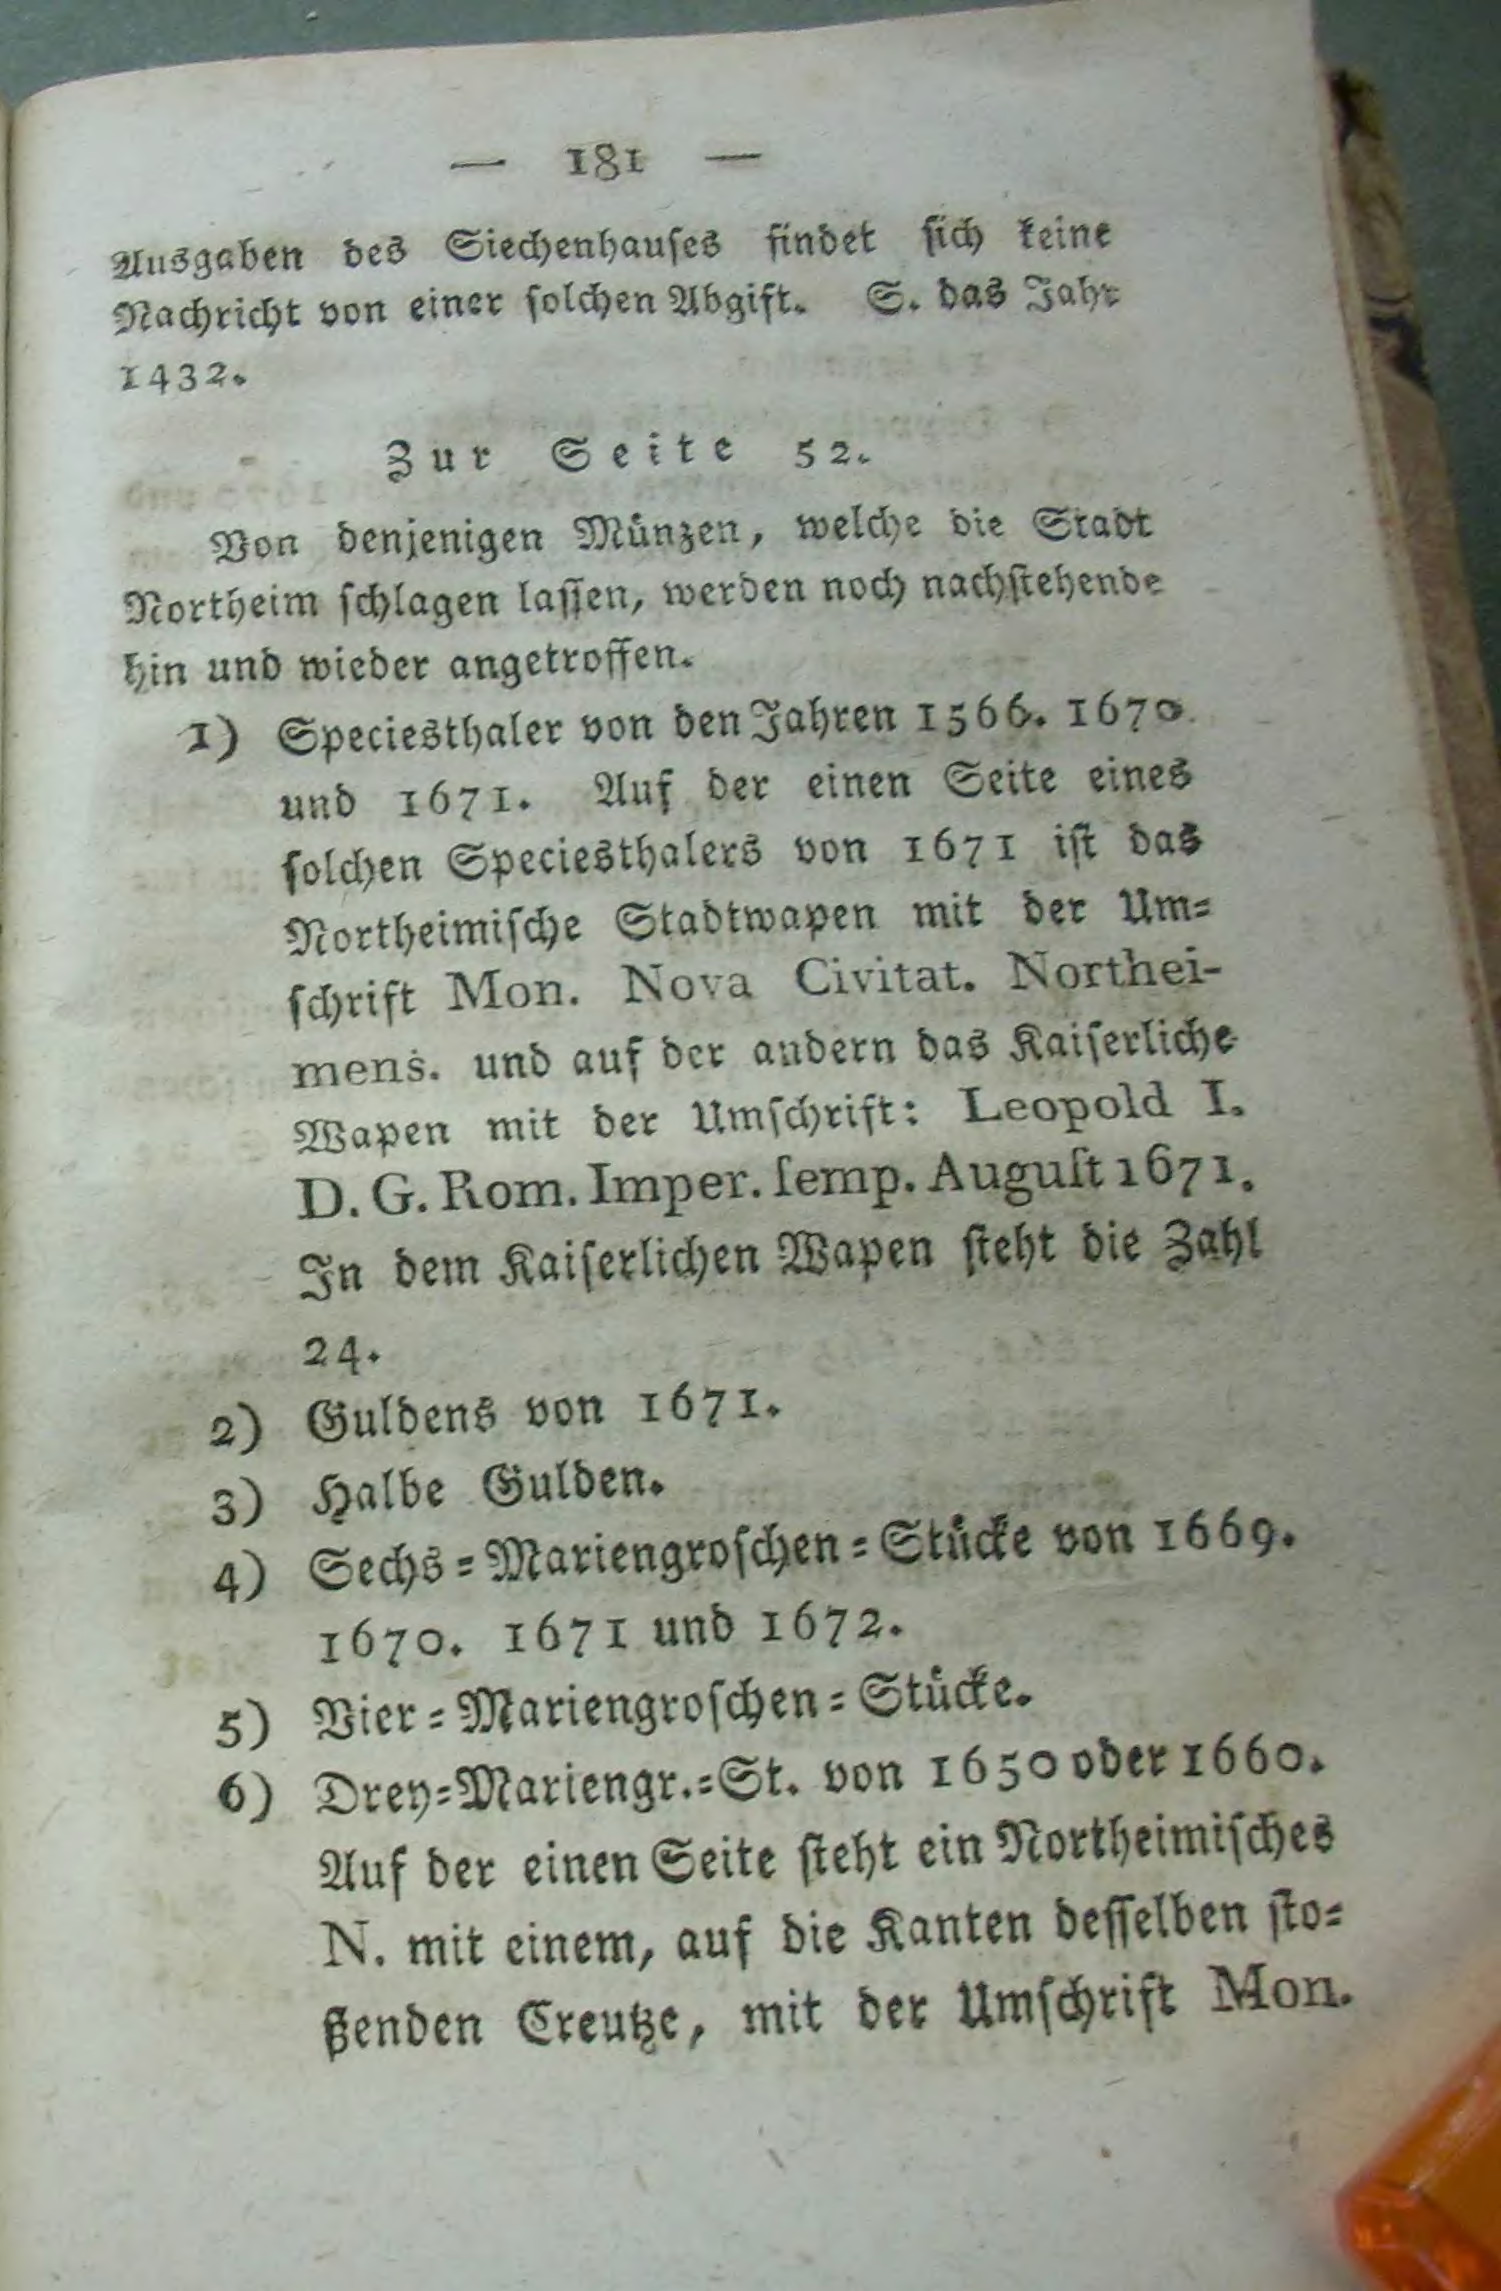 — 181 —
Ausgaben des Siechenhauſes findet ſich keine
Nachricht von einer ſolchen Abgift. S. das Jahr
1432.
Zur Seite 52.
Von denjenigen Muͤnzen, welche die Stadt
Northeim ſchlagen laſſen, werden noch nachſtehende
hin und wieder angetroffen.
1) Speciesthaler von den Jahren 1566. 1670
und 1671. Auf der einen Seite eines
ſolchen Speciesthalers von 1671 iſt das
Northeimiſche Stadtwapen mit der Um⸗
ſchrift Mon. Nova Civitat. Northei-
mens. und auf der andern das Kaiſerliche
Wapen mit der Umſchrift: Leopold I.
D. G. Rom. Imper. ſemp. Auguſt 1671.
In dem Kaiſerlichen Wapen ſteht die Zahl
24.
2) Guldens von 1671.
3) Halbe Gulden.
4) Sechs⸗Mariengroſchen⸗Stuͤcke von 1669.
1670. 1671 und 1672.
5) Vier⸗Mariengroſchen⸗Stuͤcke.
6) Drey⸗Mariengr.⸗St. von 1650 oder 1660.
Auf der einen Seite ſteht ein Northeimiſches
N. mit einem, auf die Kanten deſſelben ſto⸗
ßenden Creutze, mit der Umſchrift Mon.